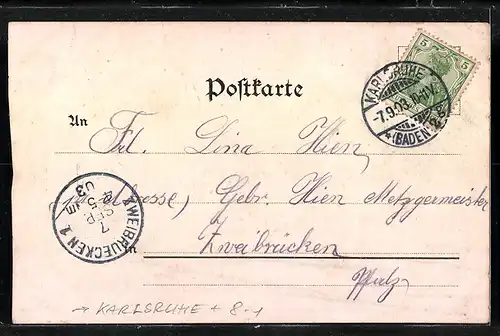 5 5
KARLSRUHE
-7.9.03.
*(BADEN)
Postkarte
An
Frl. Lina Hien
Adresse) Gebr. Hien Metzgermeister
ZWEIBRUECKEN 1
7
SEP.
03
in Zweibrücken
Pfalz
→ KARLSRUHE + 8.-1